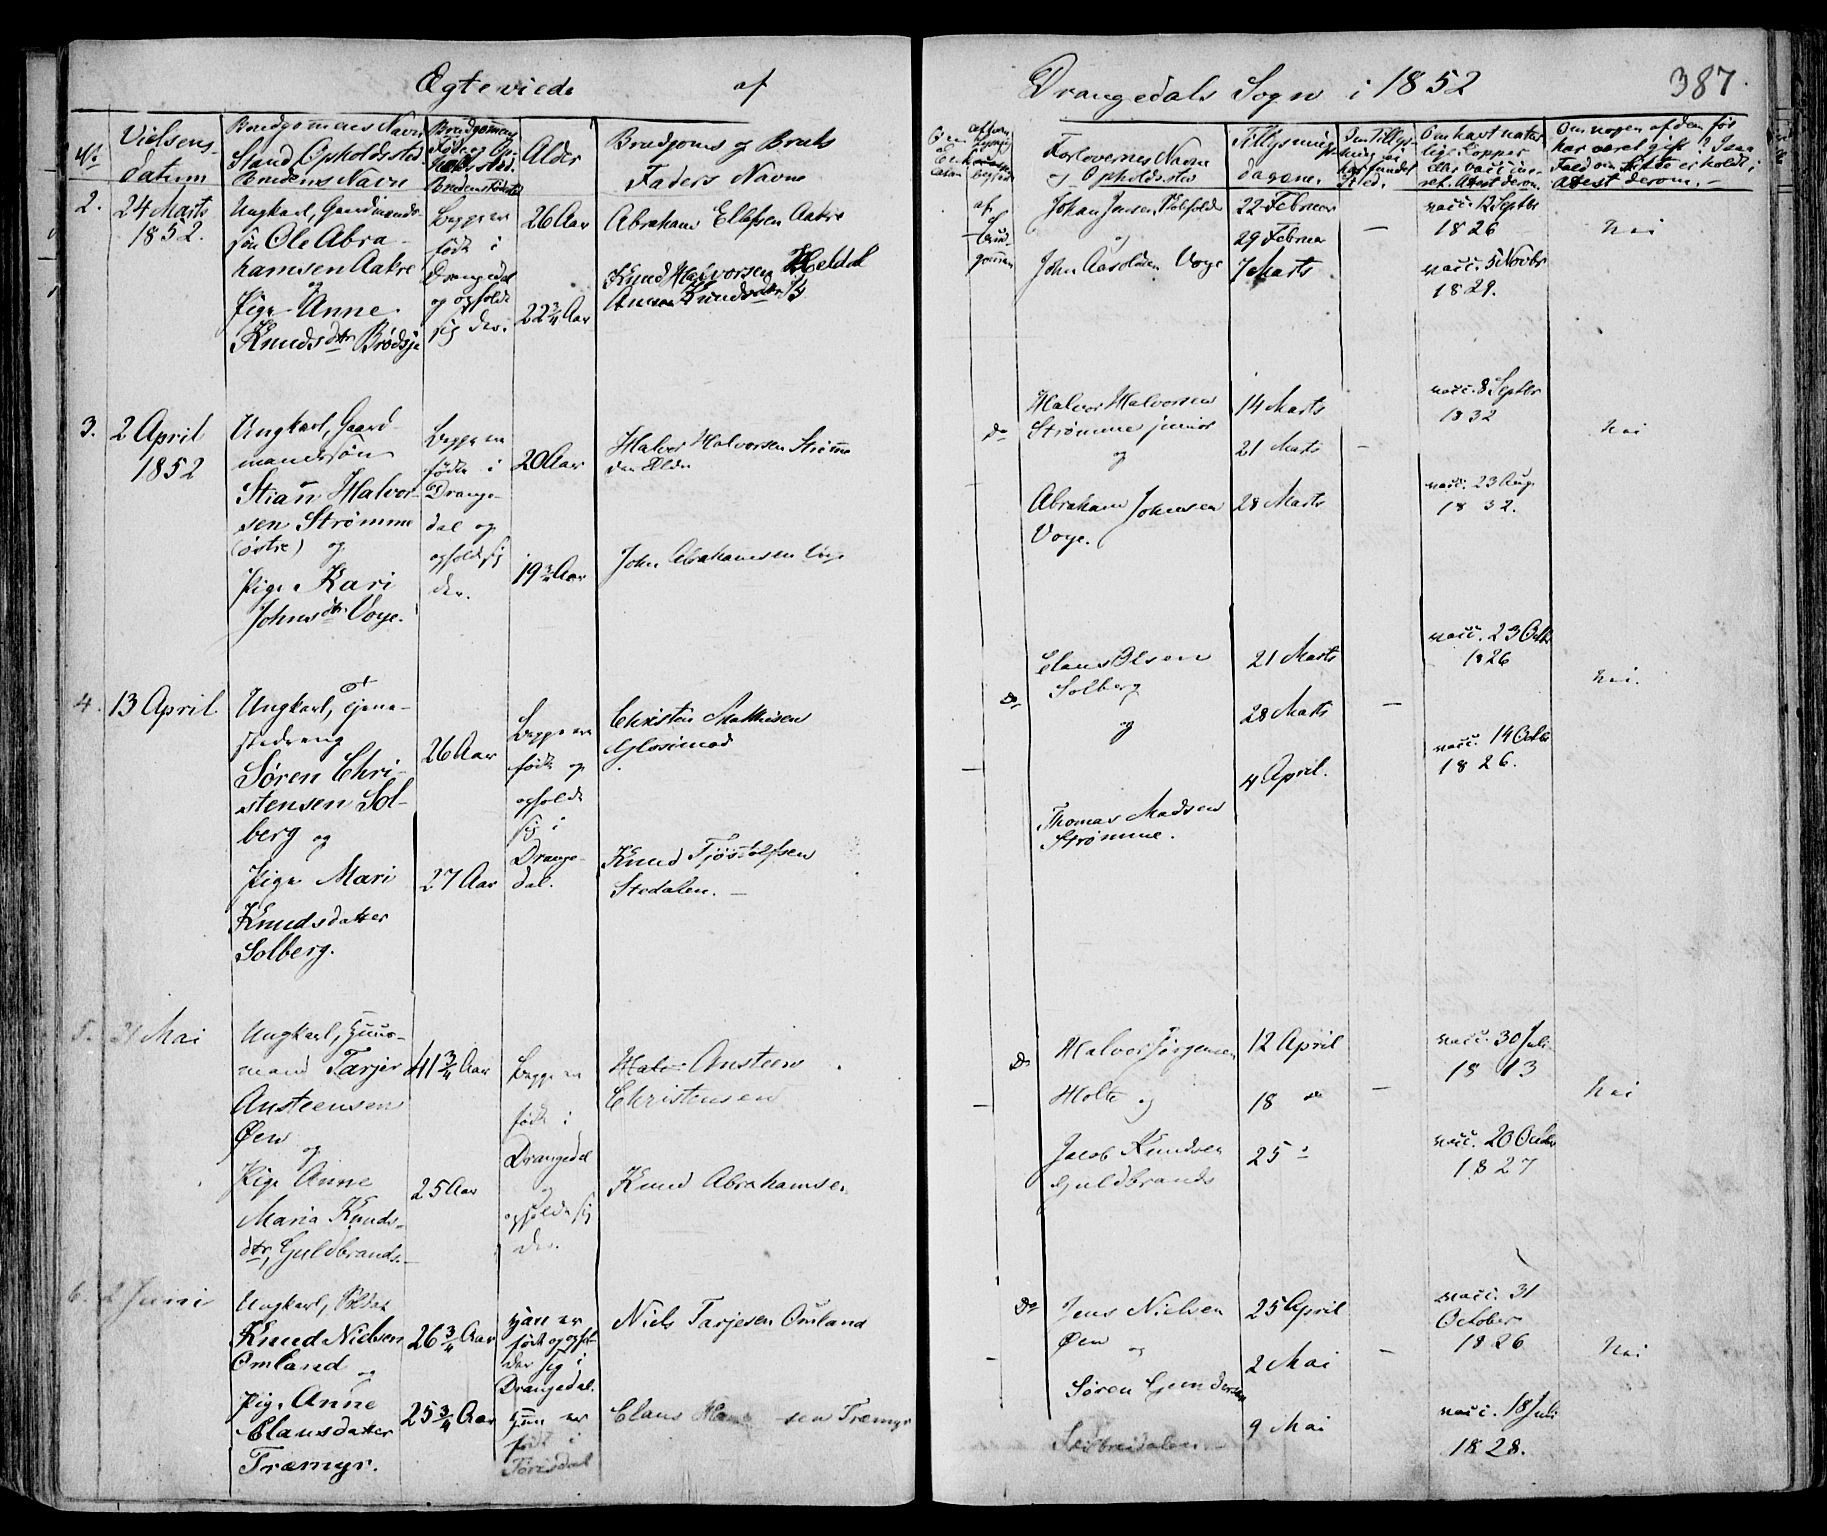 Egteviede af
Drangedals Sogn i 1852 387.
No
Vielses-
datum
Brudgommens Navn
Stand Opholdssted
Brudens Navn
Brudgommens
Alder
Brudgoms og Bruds
Faders Navne
Forlovernes Navne
og Opholdssted
Tillysnings-
dagene.
Om nogen af dem før
har været gift? I saa
Attest derom.-
2. 24 Marts
1852.
Ungkarl, Gaardmands-
søn Ole Abra-
hamsen Aakre
og
Pige Anne
Knudsdtr Brødsjø
Begge er
født i
Drangedal
og opholde
sig der.
26 Aar
22 3/4 Aar
Abraham Ellefsen Aakre
Knud Halvorsen Heldal
af
Brud-
gommen
Johan Jensen
og
John Aasolvsen Voje
22 Februar
29 Februar
7 Marts
-
vacc. 12 Septbr
1826
vacc. 5 Novbr
1829.
Nei
3. 2 April
1852
Ungkarl, Gaard-
mandssøn
Stian Halvor-
sen Strømme
(østre) og
Pige Kari
Johnsdtr Voje.
Begge er
fødte i
Drange-
dal og
opholde sig
der.
20 Aar
19 3/4 Aar
Halvor Halvorsen Strømme
den Ældre
John Abrahamsen Voje
Do
Halvor Halvorsen
Strømme junior
og
Abraham Johnsen
Voje.
14 Marts
21 Marts
28 Marts
-
vacc. 8 Septbr
1832
vacc. 23 Aug.
1832.
Nei
4. 13 April.
Ungkarl, Tjene-
stedreng
Søren Chri-
stensen Sol-
berg og
Pige Mari
Knudsdatter
Solberg.
26 Aar
27 Aar
Begge ere
født og
opholde
sig i
Drange-
dal.
Christen Mathisen
Knud Tjøstolfsen
Stedalen.-
Do
Claus Olsen
Solberg
og
Thomas Madsen
Strømme.
21 Marts
28 Marts
4 April.
-
vacc. 23 Octb
1826
vacc. 14 Octbr
1826.
Nei.
5. 31 Mai
Ungkarl, Huus-
mand Tarjer
Ansteensen
Øen
og
Pige Anne
Maria Knuds-
dtr, Guldbrands.-
41 3/4 Aar
25 Aar
Begge er
født i
Drangedal
og
opholde sig
der.
Ansteen
Christensen
Knud Abrahamsen
Do
Halvor Jørgensen
Holte og
Jacob Knudsen
Guldbrands
12 April
18 do
25 "
-
vacc. 30 Juli
1813
vacc. 20 Octbr
1827
Nei
6. 2 Juni
Ungkarl, Soldat
Knud Nielsen
Omland
og
Pige Anne
Clausdatter
Træmyr.
26 3/4 Aar
25 3/4 Aar
Han er
født og ophol-
der sig i
Drangedal.
Hun er
født i
Tørisdal
Niels Tarjesen Omland
Claus sen Træmyr
Do
Jens Nielsen
Øen
og
Søren Gundersen
25 April
2 Mai
9 Mai
-
vacc. 31
October
1826
vacc. 18 Juli
1828.
Nei